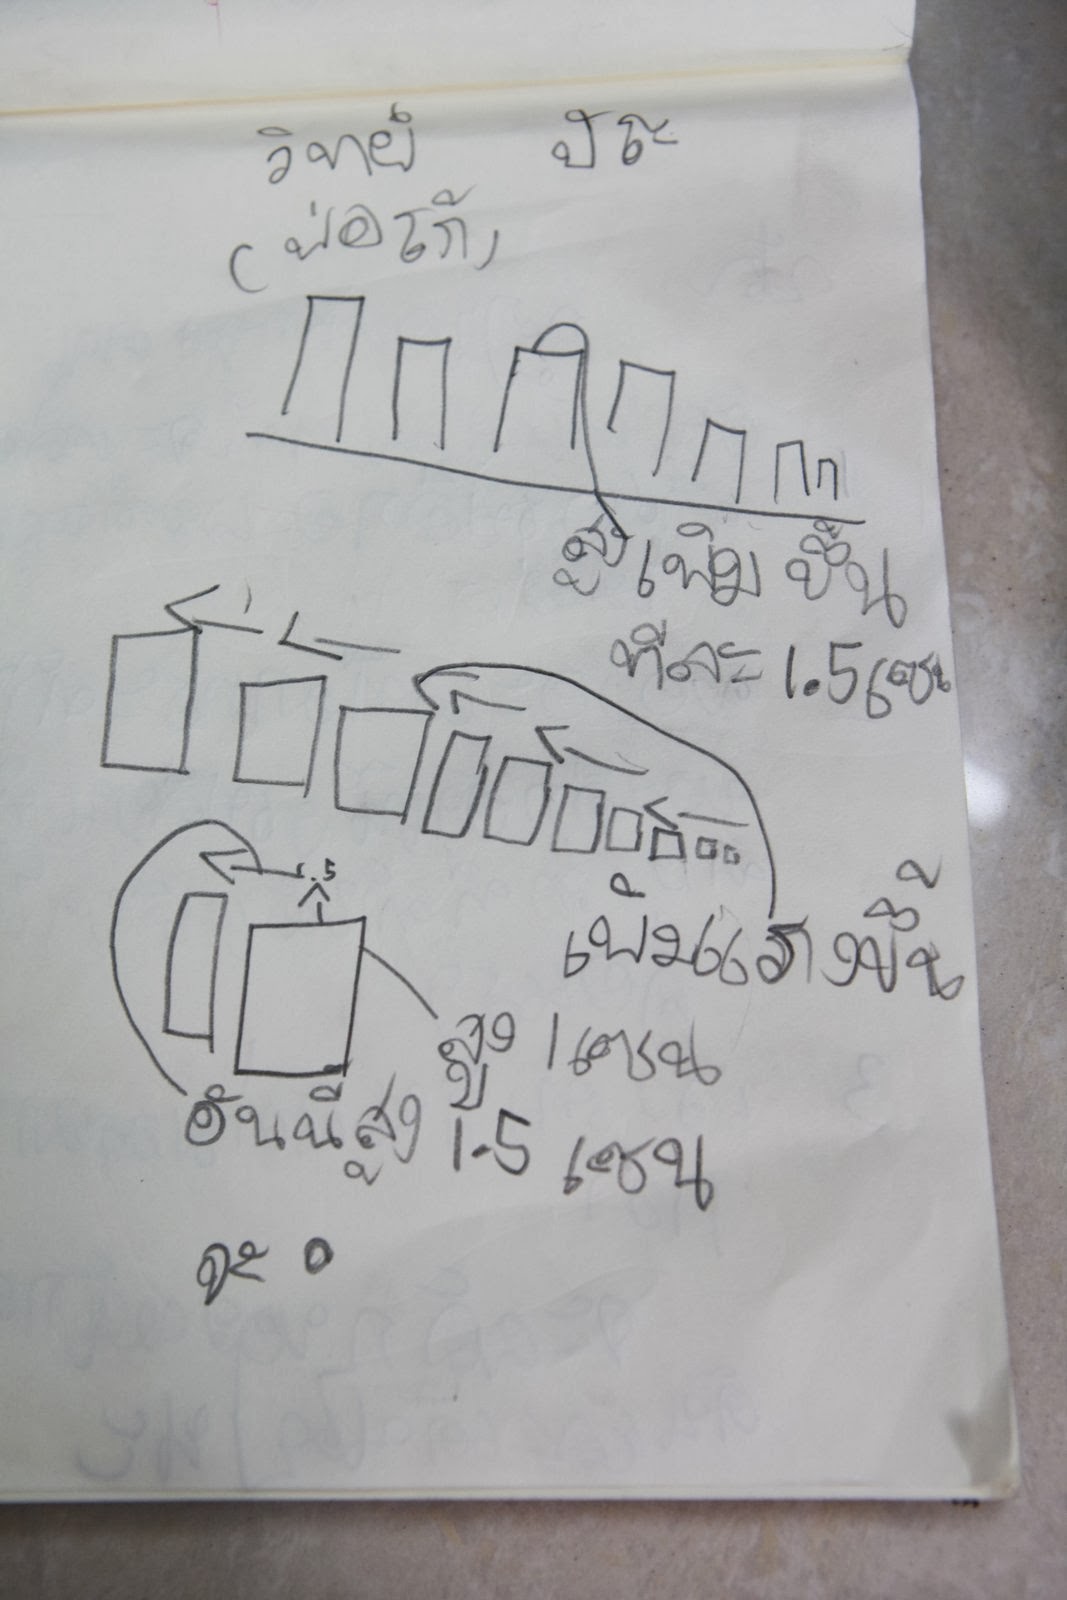 วิทย์ ปัธะ
(พ่อโก้)
สูงเพิ่มขึ้น
ทีละ 1.5 เซน
1.5
เพิ่มแรงขึ้น
สูง 1 เซน
อันนี้สูง 1.5 เซน
จะ